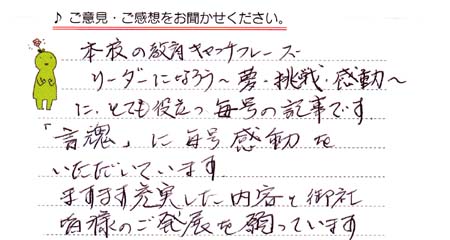 ♪ ご意見・ご感想をお聞かせください。
本校の教育キャッチフレーズ
リーダーになろう~夢・挑戦・感動~
に、とても役立つ毎号の記事です
「言魂」に毎号感動を
いただいています
ますます充実した内容と御社
皆様のご発展を願っています